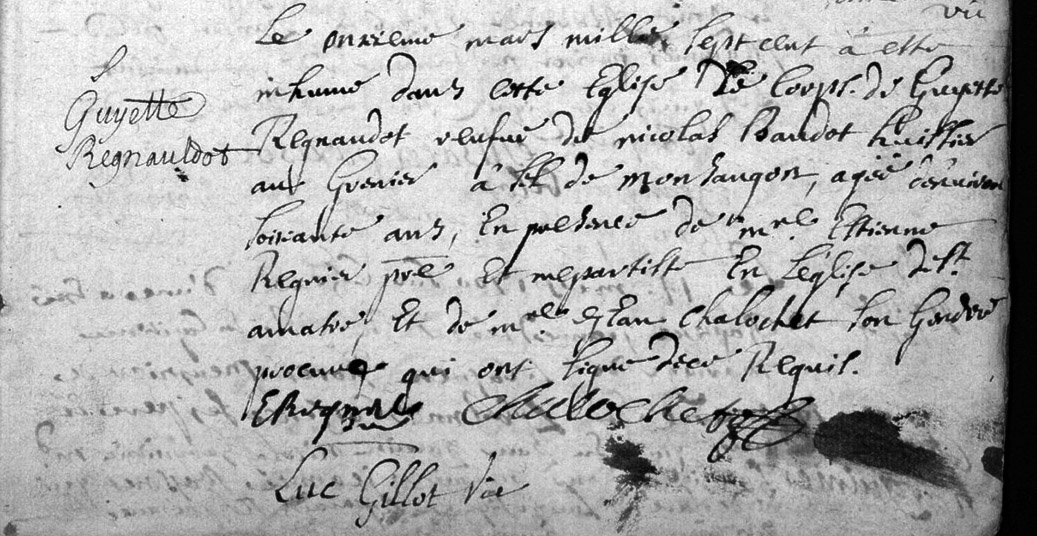 vic
Le onzieme mars mille sept cent à este
Guyette
Regnauldot
inhumé dans cette Eglise Le Corps de Guyette
Regnaudot veufue de nicolas Baudot huissier
aux Grenier à sel de monsaugeon, agée denviron
soixante ans, En presence de mre Estienne
Regnier pbre Et mepartiste En Léglise de st
amatre, Et de mre Jean Chalochet son Gendre
procureur qui ont signe dece Requis.
ERegnier Chalochet
Luc Gillot vic